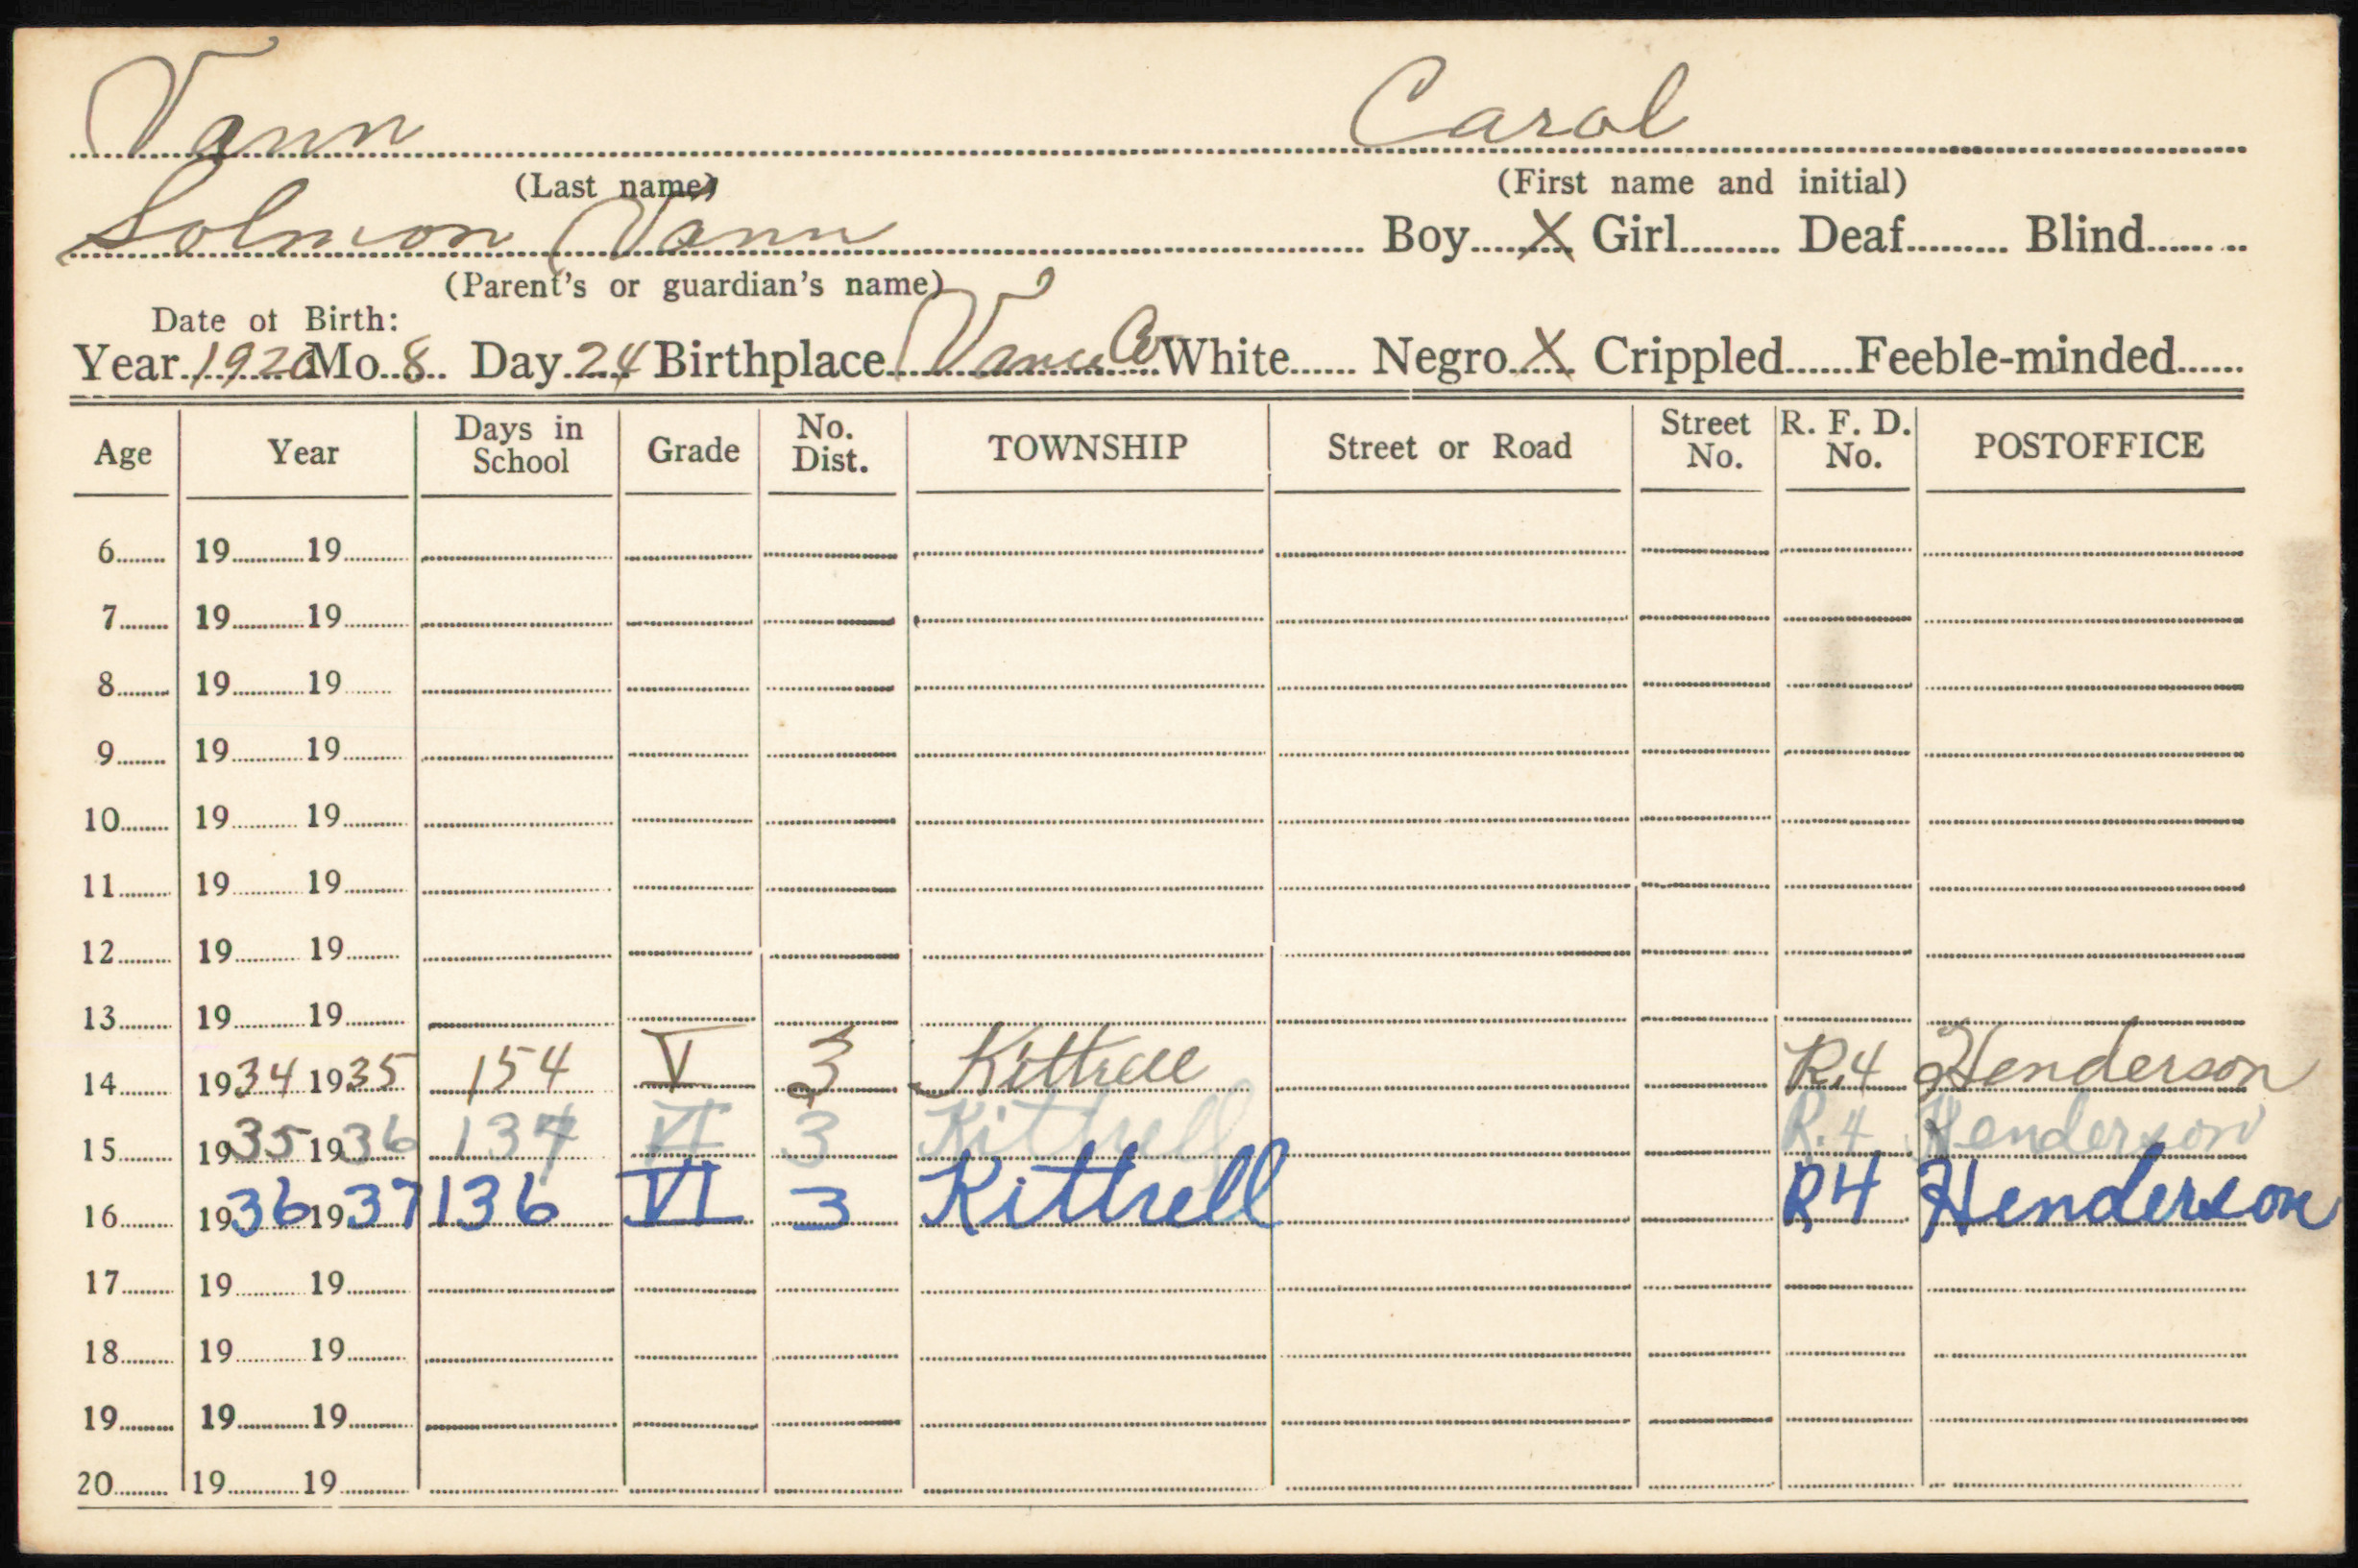 Vann Carol
(Last name) (First name and initial)
Solmon Vann Boy X Girl Deaf Blind
(Parent's or guardian's name)
Date of Birth:
Year 1920 Mo. 8 Day 24 Birthplace Vance Co White Negro X Crippled Feeble-minded
Age Year Days in School Grade No. Dist. TOWNSHIP Street or Road Street No. R. F. D. No. POSTOFFICE
6 19 19
7 19 19
8 19 19
9 19 19
10 19 19
11 19 19
12 19 19
13 19 19
14 1934 1935 154 V 3 Kittrell R.4 Henderson
15 1935 1936 137 VI 3 Kittrell R.4 Henderson
16 1936 1937 136 VI 3 Kittrell R4 Henderson
17 19 19
18 19 19
19 19 19
20 19 19